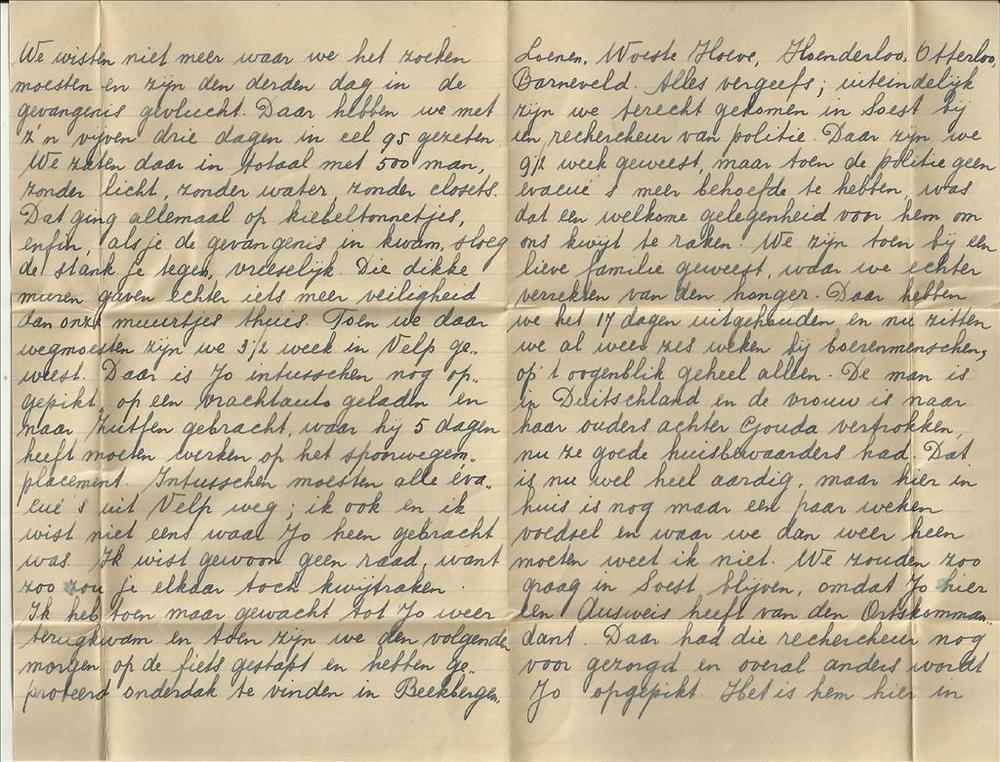 We wisten niet meer waar we het zoeken
moesten en zijn den derden dag in de
gevangenis gevlucht. Daar hebben we met
z'n vijven drie dagen in cel 95 gezeten.
We zaten daar in totaal met 500 man,
zonder licht, zonder water, zonder closets.
Dat ging allemaal op kiebeltonnetjes,
enfin, als je de gevangenis in kwam, sloeg
de stank je tegen, vreeselijk. Die dikke
muren gaven echter iets meer veiligheid
dan onze muurtjes thuis. Toen we daar
wegmoesten zijn we 3½ week in Velp ge„
weest. Daar is Jo intusschen nog op„
gepikt, op een vrachtauto geladen en
naar Zutfen gebracht, waar hij 5 dagen
heeft moeten werken op het spoorwegem„
placement. Intusschen moesten alle éva„
cué's uit Velp weg; ik ook en ik
wist niet eens waar Jo heen gebracht
was. Ik wist gewoon geen raad, want
zoo zou je elkaar toch kwijtraken.
Ik heb toen maar gewacht tot Jo weer
terugkwam en toen zijn we den volgende
morgen op de fiets gestapt en hebben ge„
probeerd onderdak te vinden in Beekbergen,
Loenen, Woeste Hoeve, Hoenderloo, Otterloo,
Barneveld. Alles vergeefs; uiteindelijk
zijn we terecht gekomen in Soest bij
een rechercheur van politie. Daar zijn we
9½ week geweest, maar toen de politie geen
evacué's meer behoefde te hebben, was
dat een welkome gelegenheid voor hem om
ons kwijt te raken. We zijn toen bij een
lieve familie geweest, waar we echter
verrekten van den honger. Daar hebben
we het 17 dagen uitgehouden en nu zitten
we al weer zes weken bij boerenmenschen,
op 't oogenblik geheel alleen. De man is
in Duitschland en de vrouw is naar
haar ouders achter Gouda vertrokken,
nu ze goede huisbewaarders had. Dat
is nu wel heel aardig, maar hier in
huis is nog maar een paar weken
voedsel en waar we dan weer heen
moeten weet ik niet. We zouden zoo
graag in Soest blijven, omdat Jo hier
een Ausweis heeft van den Ortskomman„
dant. Daar had die rechercheur nog
voor gezorgd en overal anders wordt
Jo opgepikt. Het is hem hier in